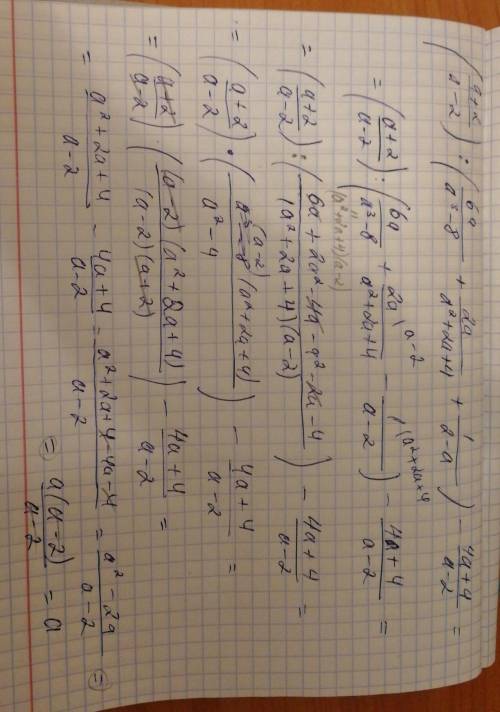 ((a+2)/(a-2)) : (6a/(a³-8) + 2a/(a²+2a+4) + 1/(2-a)) - (4a+4)/(a-2) =
= ((a+2)/(a-2)) : (6a/(a³-8) + 2a/(a²+2a+4) - 1/(a-2)) - (4a+4)/(a-2) =
(a²+2a+4)(a-2) (a-2 (a²+2a+4
= ((a+2)/(a-2)) : ((6a+2a²-4a-a²-2a-4)/((a²+2a+4)(a-2))) - (4a+4)/(a-2) =
= ((a+2)/(a-2)) · ((a-2)(a²+2a+4)/(a²-4)) - (4a+4)/(a-2) =
= ((a+2)/(a-2)) · ((a-2)(a²+2a+4)/((a-2)(a+2))) - (4a+4)/(a-2) =
= (a²+2a+4)/(a-2) - (4a+4)/(a-2) = (a²+2a+4-4a-4)/(a-2) = (a²-2a)/(a-2) =
= a(a-2)/(a-2) = a